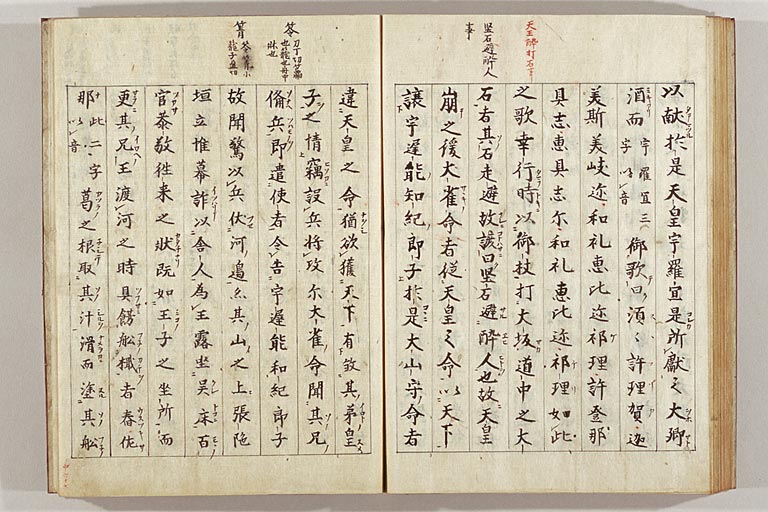 天皇酔打石
堅石避酔人
事
以献於是天皇宇羅宜是所獻之大御
酒而 宇羅宜三字以音 御歌曰湏々許理賀迦
美斯美岐迩和礼恵比迩祁理許登那
具志恵具志尓和礼恵比迩祁理如此
之歌幸行時以御杖打大坂道中之大
石者其石走避故諺曰堅石避醉人也故天皇
崩之後大雀命者従天皇之命以天下
讓宇遅能和紀郎子於是大山守命者
違天皇之命猶欲獲天下有敘其弟皇
子之情竊設兵将攻尓大雀命聞其兄
俻兵即遣使者令告宇遅能和紀郎子
故聞驚以兵伏河邉亦其山之上張絁
垣立惟幕詐以舎人為王露坐吴床百
官恭敬徃来之状既如王子之坐所而
更其兄王渡河之時具餝舩檝者舂佐
那 此二字以音 葛之根取其汁滑而塗其舩
苓
箐